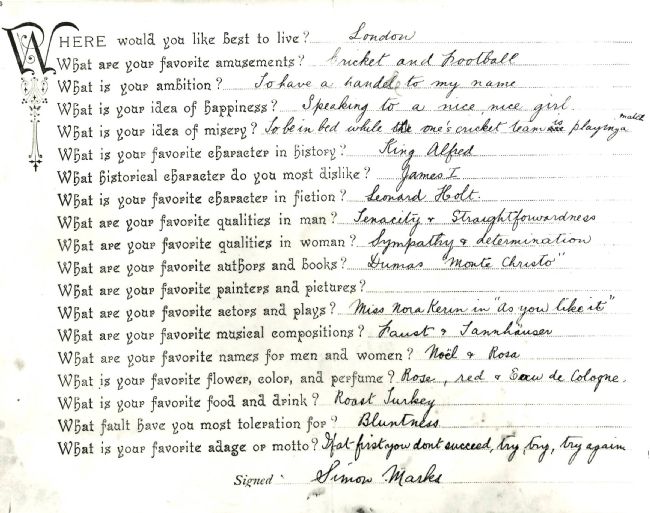 WHERE would you like best to live? London
What are your favorite amusements? Cricket and Football
What is your ambition? To have a handle to my name
What is your idea of happiness? Speaking to a nice nice girl.
What is your idea of misery? To be in bed while one's cricket team is playing a match
What is your favorite character in history? King Alfred
What historical character do you most dislike? James I
What is your favorite character in fiction? Leonard Holt.
What are your favorite qualities in man? Tenacity & Straightforwardness
What are your favorite qualities in woman? Sympathy & determination
What are your favorite authors and books? Dumas "Monte Christo"
What are your favorite painters and pictures?
What are your favorite actors and plays? Miss Nora Kerin in "As you like it"
What are your favorite musical compositions? Faust & Tannhäuser
What are your favorite names for men and women? Noël & Rosa
What is your favorite flower, color, and perfume? Rose, red & Eau de Cologne.
What are your favorite food and drink? Roast Turkey
What fault have you most toleration for? Bluntness
What is your favorite adage or motto? If at first you dont succeed, try, try, try again
Signed Simon Marks